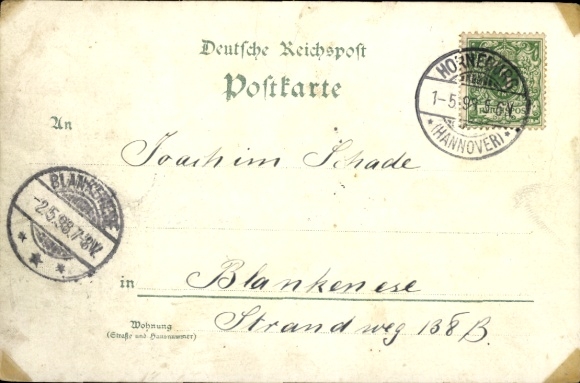 Deutsche Reichspost
Postkarte
HORNEBURG
1-5.98. 5-6N.
*(HANNOVER)*
An
Joachim Schade
BLANKENESE
-2.5.98.7-8V.
in Blankenese
Wohnung
(Straße und Hausnummer)
Strandweg 138 B.